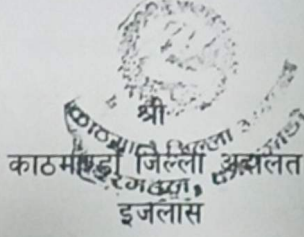 श्री
काठमाण्डौ जिल्ला अदालत
इजलास